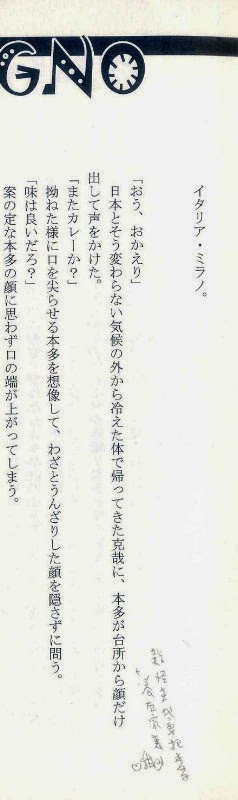 GNO
イタリア・ミラノ。
「おう、おかえり」
日本とそう変わらない気候の外から冷えた体で帰ってきた克哉に、本多が台所から顔だけ
出して声をかけた。
「またカレーか？」
拗ねた様に口を尖らせる本多を想像して、わざとうんざりした顔を隠さずに問う。
「味は良いだろ？」
案の定な本多の顔に思わず口の端が上がってしまう。